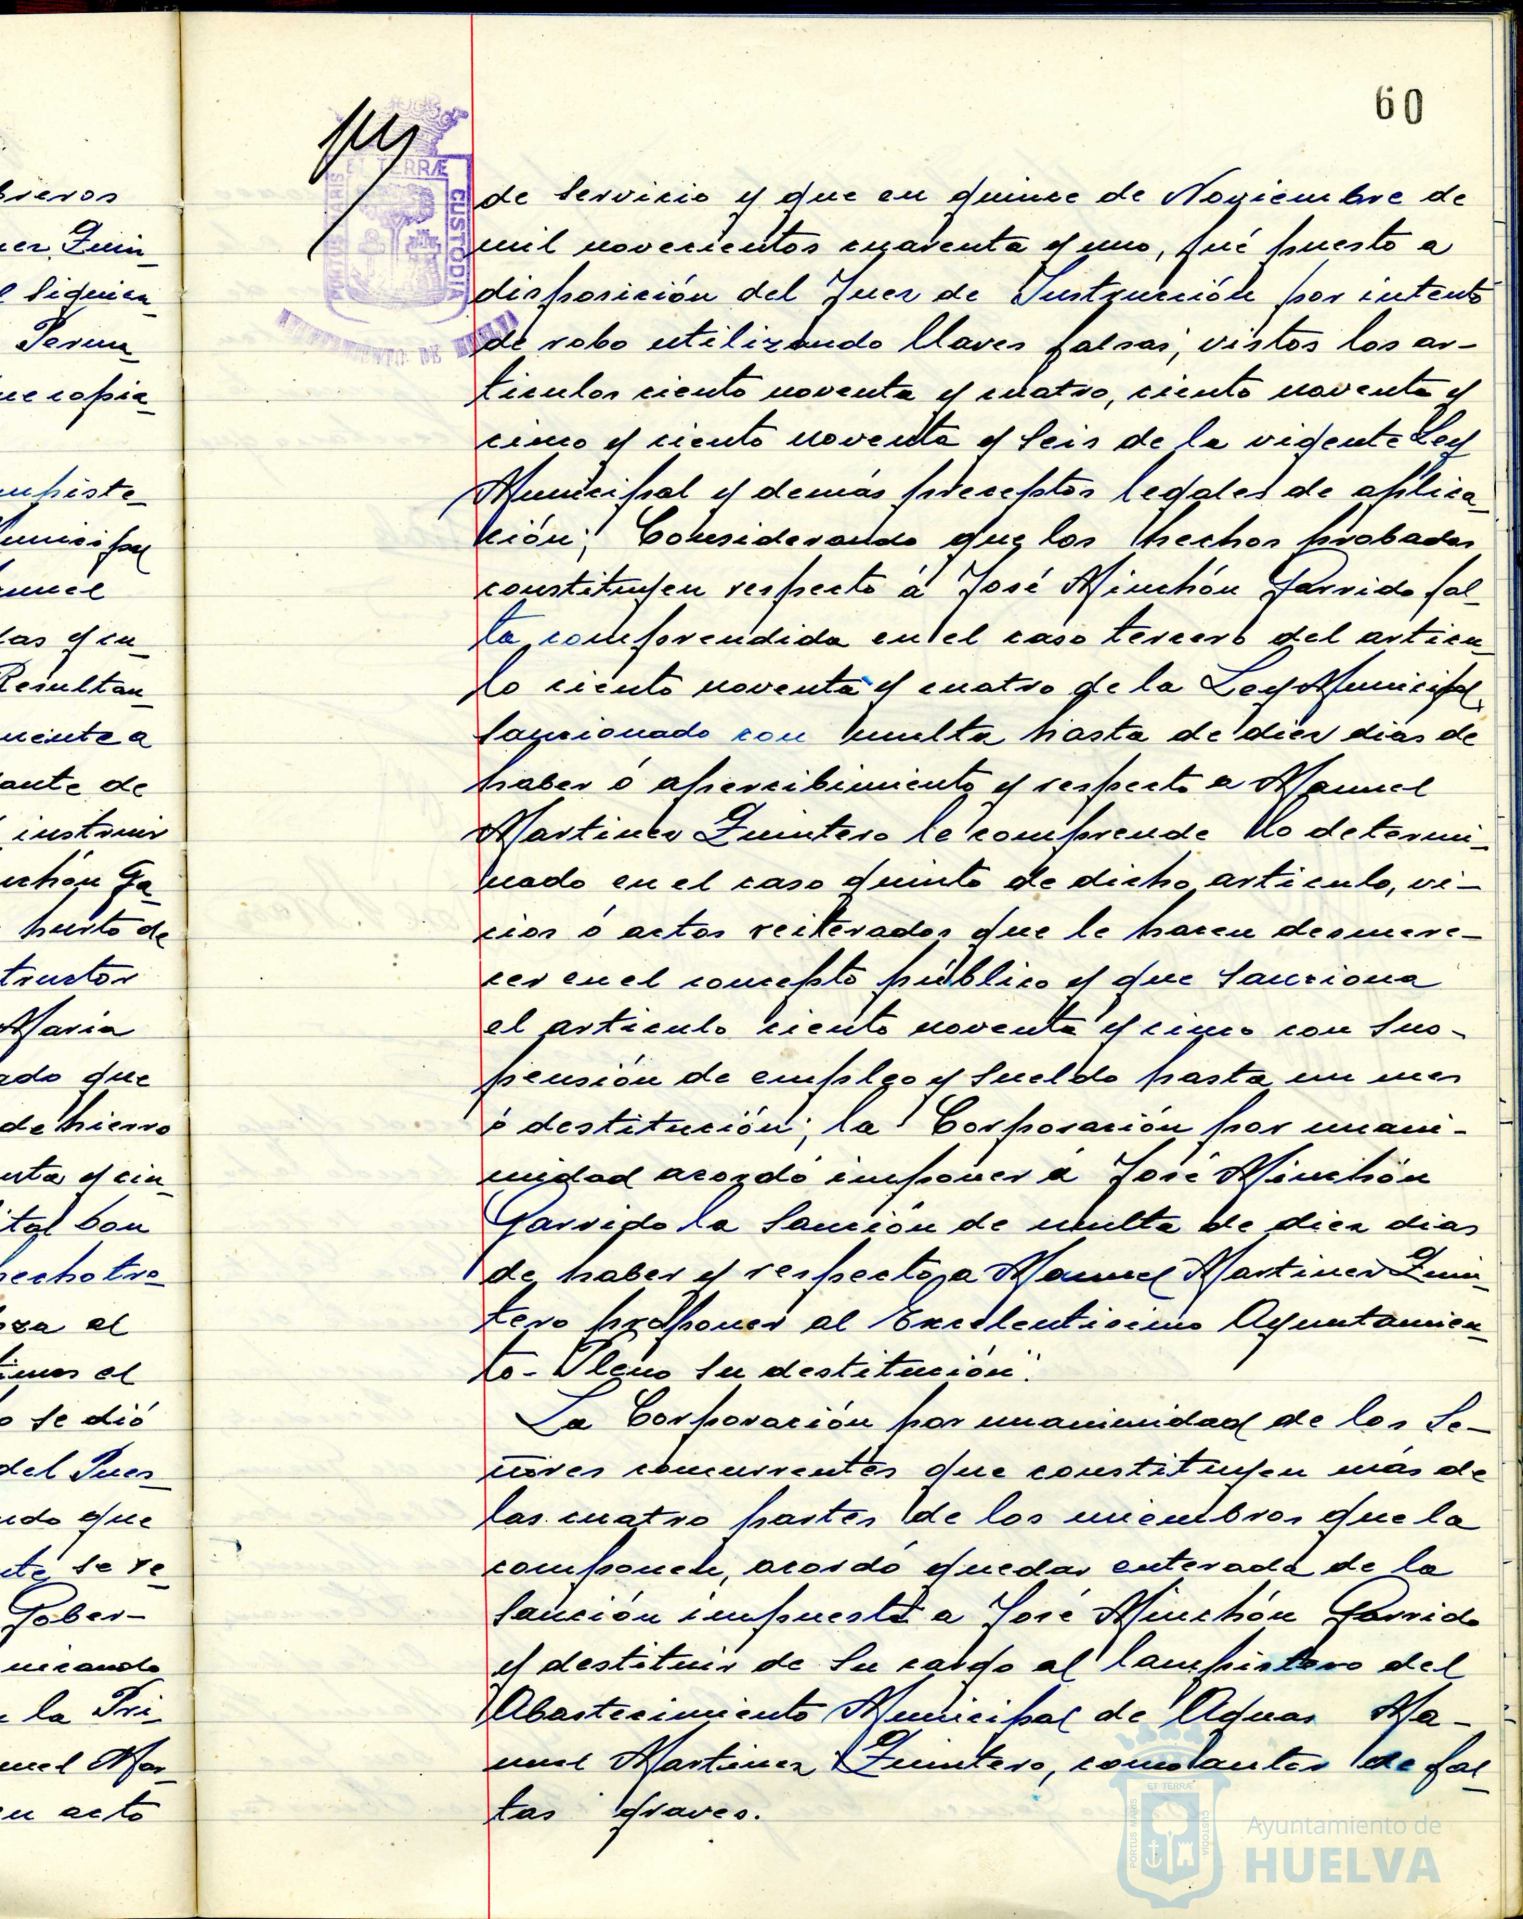 60
breros
nez Quin-
Siguien
Perma
ue copia
mpiste-
Municipal
anuel
las y cu-
Resultan-
mente a
ante de
instruir
nchón Ga-
hurto de
tructor
María
ado que
de hierro
nta y cin-
tal bon
hecho tra-
nza al
timos el
o se dió
del Pues-
ndo que
nte se re-
Gober-
nicando
la Pri-
uel Mar-
en acto
ET TERRÆ
CUSTODIA
PORTUS MARIS
AYUNTAMIENTO DE HUELVA
de servicio y que en quince de Noviembre de
mil novecientos cuarenta y uno, fué puesto a
disposición del Juez de Instrucción por intento
de robo utilizando llaves falsas; vistos los ar-
tículos ciento noventa y cuatro, ciento noventa y
cinco y ciento noventa y seis de la vigente Ley
Municipal y demás preceptos legales de aplica-
ción; Considerando que los hechos probados
constituyen respecto á José Minchón Garrido fal-
ta comprendida en el caso tercero del artícu-
lo ciento noventa y cuatro de la Ley Municipal,
sancionado con multa hasta de diez días de
haber ó apercibimiento y respecto a Manuel
Martinez Quintero le comprende lo determi-
nado en el caso quinto de dicho artículo, vi-
cios ó actos reiterados que le hacen desmere-
cer en el concepto público y que sanciona
el artículo ciento noventa y cinco con sus-
pensión de empleo y sueldo hasta un mes
ó destitución; la Corporación por unani-
midad acordó imponer á José Minchón
Garrido la sanción de multa de diez dias
de haber y respecto a Manuel Martinez Quin-
tero proponer al Excelentísimo Ayuntamien-
to-Pleno su destitución".
La Corporación por unanimidad de los Se-
ñores concurrentes que constituyen más de
las cuatro partes de los miembros que la
componen, acordó quedar enterada de la
sanción impuesta a José Minchón Garrido
y destituir de su cargo al lampistero del
Abastecimiento Municipal de Aguas Ma-
nuel Martinez Quintero, como autor de fal-
tas graves.
ET TERRÆ
PORTUS MARIS
CUSTODIA
Ayuntamiento de
HUELVA